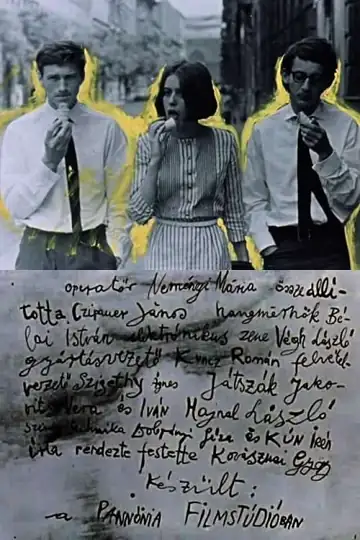 operatőr Neményi Mária összeálli-
totta Czipauer János hangmérnök Bé-
lai István elektrónikus zene Végh László
gyártásvezető Kunz Román felvétel-
vezető Szigethy Ágnes Játszák Jako-
vits Vera és Iván Hajnal László
technika Dobrányi Géza és Kún Irén
irta rendezte festette Kovásznai György
Készült:
a PANNÓNIA FILMSTÚDIÓBAN